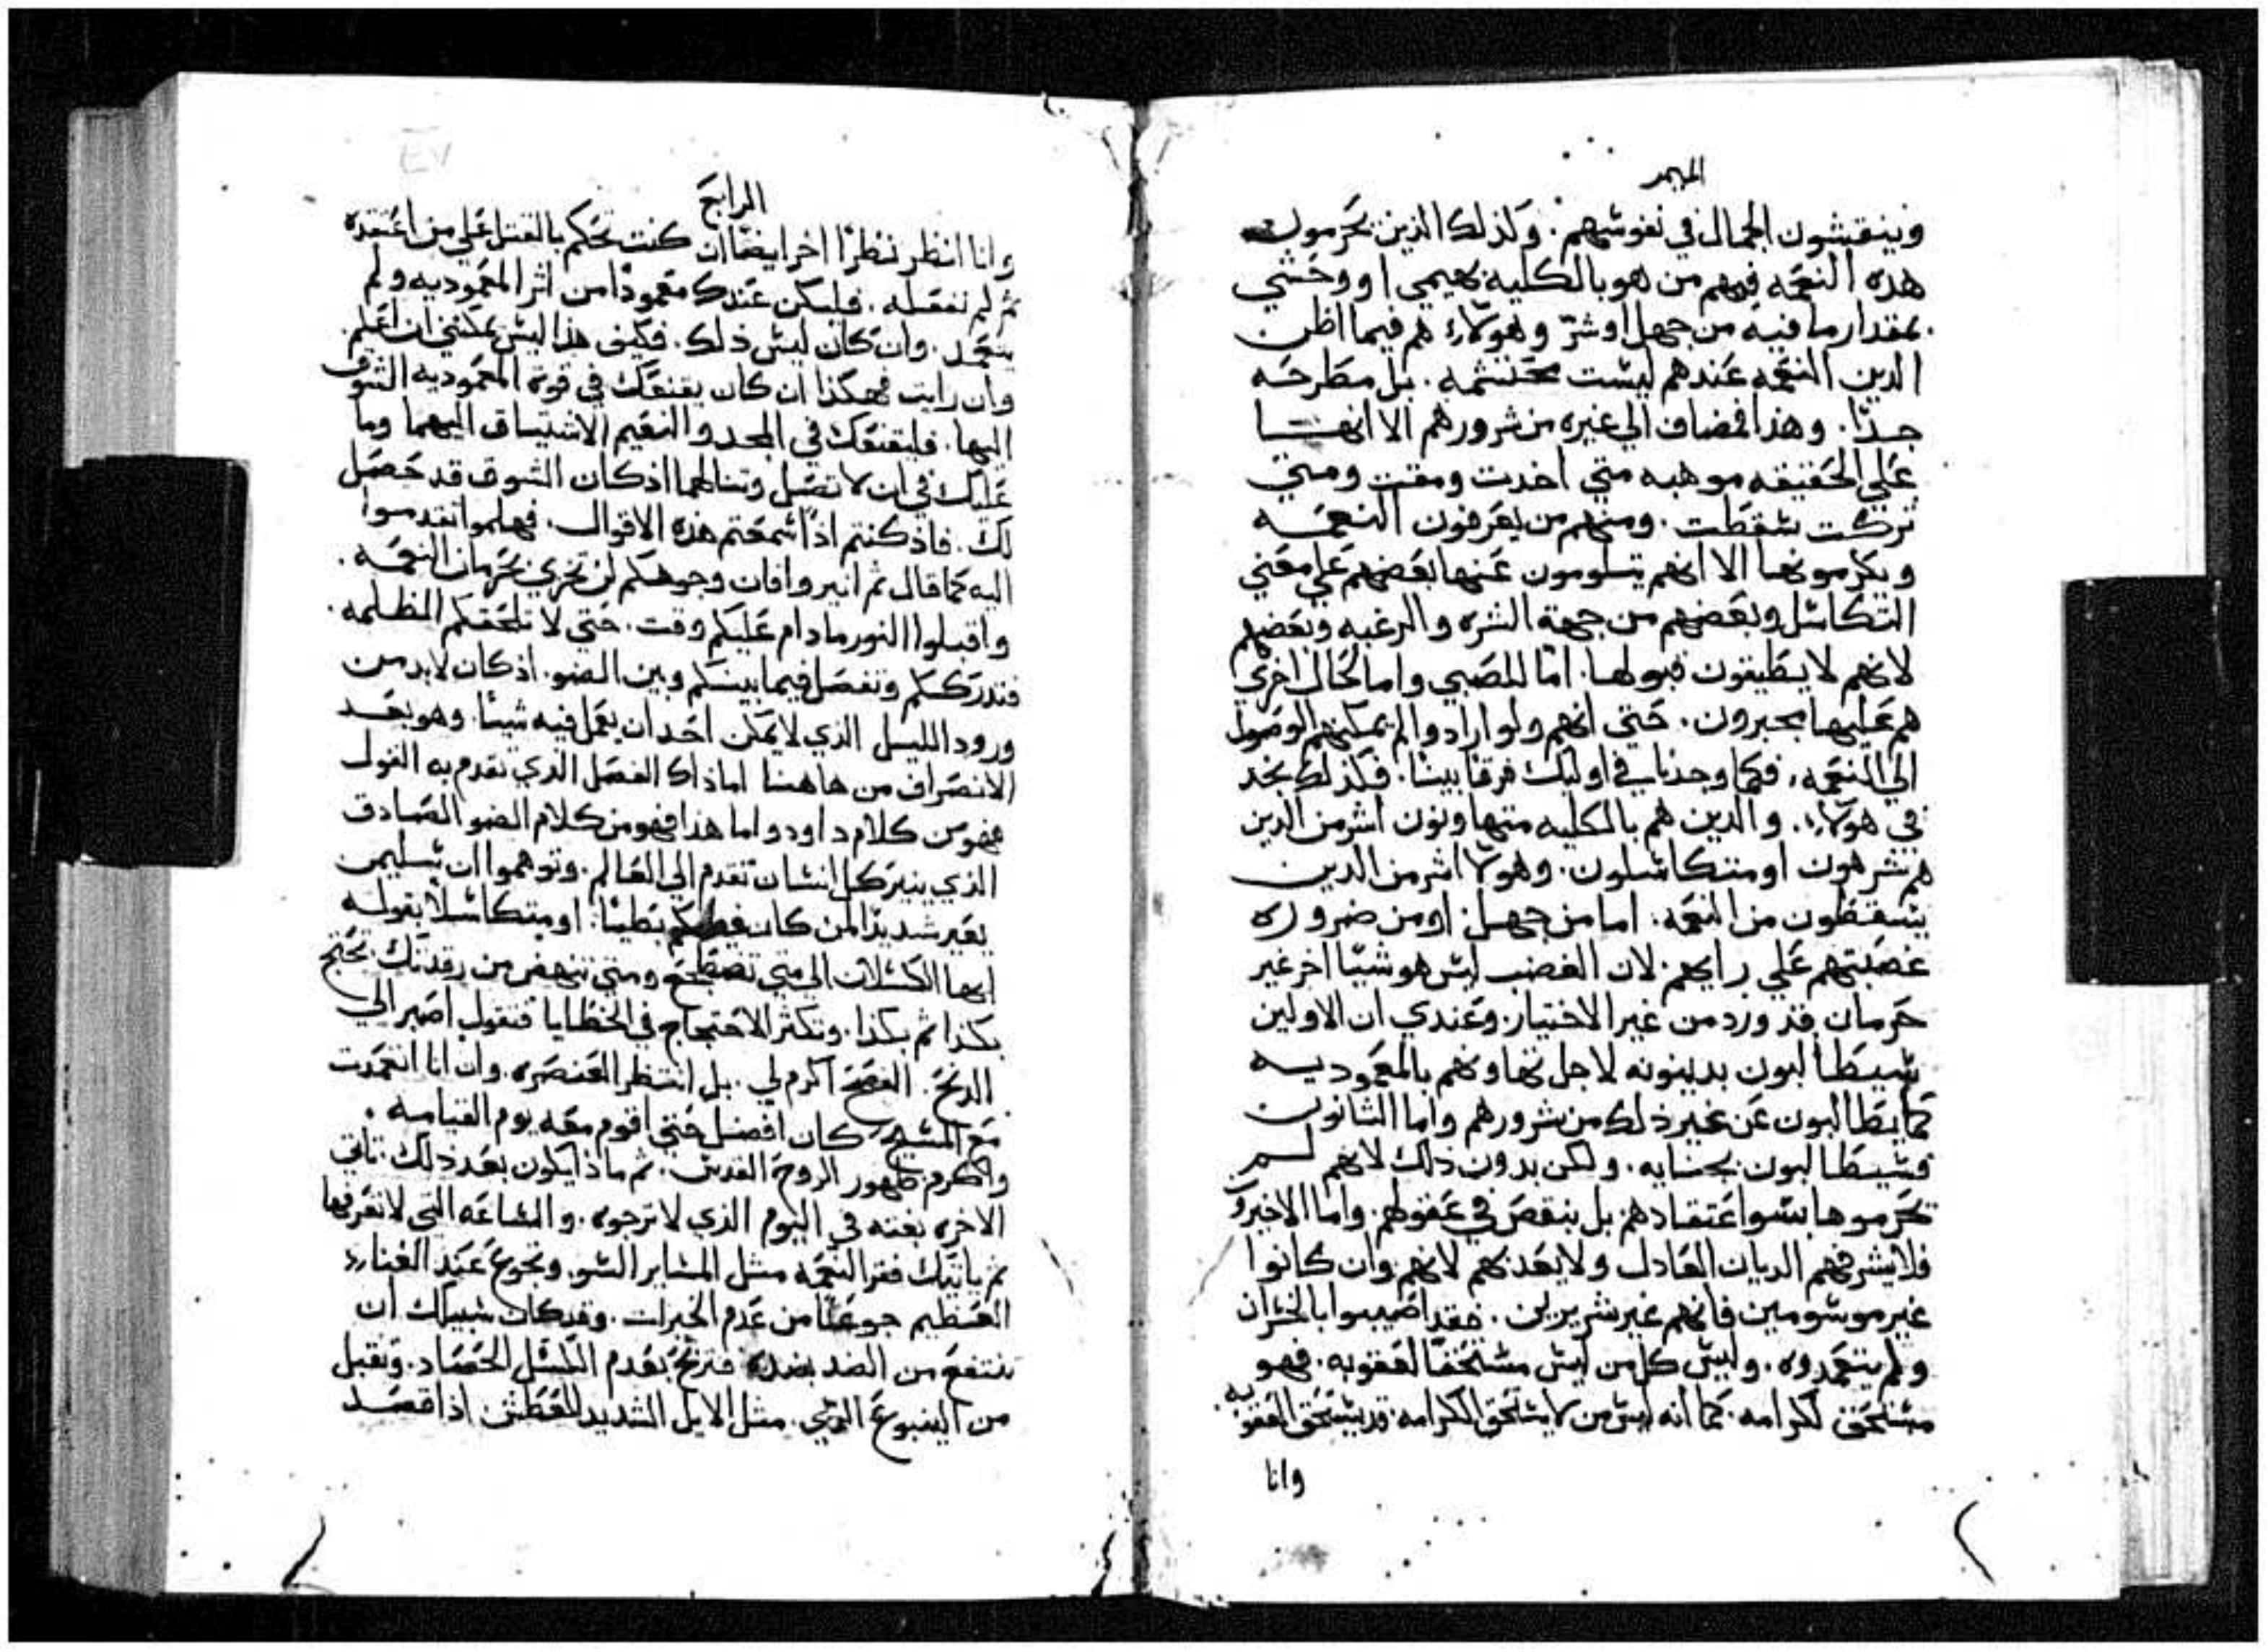 الميمر
وينقشون الجمال في نفوسهم. وكذلك الذين يحرمون
هذه النعمه فمنهم من هو بالكليه بهيمي او وحشي
بمقدار ما فيه من جهل او شر وهولاء هم فيما اظن
الذين النعمه عندهم ليست محتشمه. بل مطرحه
جدا. وهذا مضاف الي غيره من شرورهم الا انها
علي الحقيقه موهبه متي اخدت ومقت ومتي
تركت سقطت. ومنهم من يعرفون النعمه
ويكرمونها الا انهم يتلومون عنها بعضهم علي معني
التكاسل وبعضهم من جهة الشره والرغبه وبعضهم
لانهم لا يطيقون قبولها. اما للصبي واما لحال اخري
هم عليها مجبرون. حتي انهم ولو ارادوا لم يمكنهم الوصول
الي النعمه. فكما وجدنا في اوليك فرقا بينا. فكذلك نجد
في هولاء. والذين هم بالكليه متهاونون اشر من الدين
هم شرهون او متكاسلون. وهولا اشر من الدين
يسقطون من النعمه. اما من جهل او من ضروره
غصبتهم علي رايهم. لان الغضب ليس هو شيا اخر غير
حرمان قد ورد من غير الاختيار. وعندي ان الاولين
سيطالبون بدينونه لاجل تهاونهم بالمعموديه
كما يطالبون عن غير ذلك من شرورهم واما الثانون
فسيطالبون بجنايه. ولكن بدون ذلك لانهم لم
يحرموها بسوا عتقادهم بل بنقص في عقولهم. واما الاخيرو
فلا يشرفهم الديان العادل ولا يعذبهم لانهم وان كانوا
غير موسومين فانهم غير شريرين. فقد اصيبوا بالخسران
ولم يتعمدوه. وليس كل من ليس مستحقا لعقوبه. فهو
مستحق لكرامه. كما انه ليس من لا يستحق الكرامه قد يستحق العقوبه
وانا
الرابع
وانا انظر نظرا اخر ايضا ان كنت تحكم بالقتل علي من اعتقده
ثم لم نفعله. فليكن عندك معمودا من اثر المعموديه ولم
يتعمد. وان كان ليس ذلك. فكيف هذا ليس يمكنني ان اعلم.
وان رايت فهكذا ان كان يقنعك في قوة المعموديه الشوق
اليها. فليقنعك في المجد والنعيم الاشتياق اليهما وما
عليك في ان لا تصل وتنالهما اذ كان الشوق قد حصل
لك. فاذ كنتم اذا سمعتم هذه الاقوال. فهلموا تقدموا
اليه كما قال ثم انيروا فان وجوهكم لن تخري بحرمان النعمه.
واقبلوا النور ما دام عليكم وقت. حتي لا تلحقكم الظلمه.
فتدرككم وتفصل فيما بينكم وبين الضو. اذ كان لابد من
ورود الليل الذي لا يمكن احد ان يعمل فيه شيئا. وهو بعد
الانصراف من هاهنا اما ذاك الفصل الذي تقدم به القول
فهو من كلام داود واما هذا فهو من كلام الضو الصادق
الذي ينير كل انسان تقدم الي العالم. وتوهموا ان سليمن
يعير شديدا لمن كان فيكم بطيئا. او متكاسلا بقوله
ايها الكسلان الي متي تضطجع ومتي تنهض من رقدتك تحتج
بكذا ثم بكذا. وتكثر الاحتجاج في الخطايا فتقول اصبر الي
الدنح. الفصح اكرم لي. بل انتظر العنصره. وان انا اتعمدت
مع المسيح كان افضل حتي اقوم معه يوم القيامه.
واكرم ظهور الروح القدس. ثم ماذا يكون بعد ذلك. تاتي
الاخره بغته في اليوم الذي لا ترجوه. والساعه التي لا تعرفها
ثم ياتيك فقر النعمه مثل المساير السو. وتجوع عند الغناء
العظيم جوعا من عدم الخيرات. وقد كان سبيلك ان
تنتفع من الضد بضده فتربح بعدم الكسل الحصاد. وتقبل
من الينبوع الري. مثل الايل الشديد العطش اذا قصد